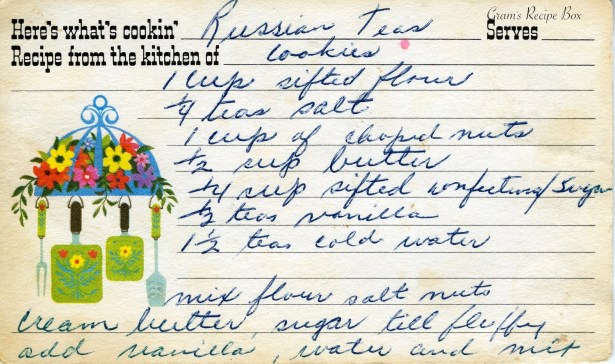 Here's what's cookin' Russian Teas Serves
Gram's Recipe Box
Recipe from the kitchen of cookies
1 cup sifted flour
1/4 teas salt
1 cup of choped nuts
1/2 cup butter
1/4 cup sifted confectionary Sugar
1/2 teas vanilla
1 1/2 teas cold water
mix flour salt nuts
cream butter, sugar till fluffy
add vanilla, water and mix